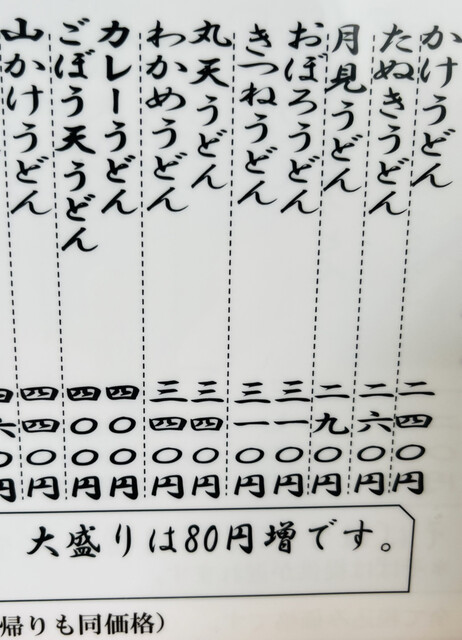 かけうどん 二四〇円
たぬきうどん 二六〇円
月見うどん 二九〇円
おぼろうどん 三一〇円
きつねうどん 三一〇円
丸天うどん 三四〇円
わかめうどん 三四〇円
カレーうどん 四〇〇円
ごぼう天うどん 四〇〇円
山かけうどん 四四〇円
四六〇円
大盛りは80円増です。
帰りも同価格)